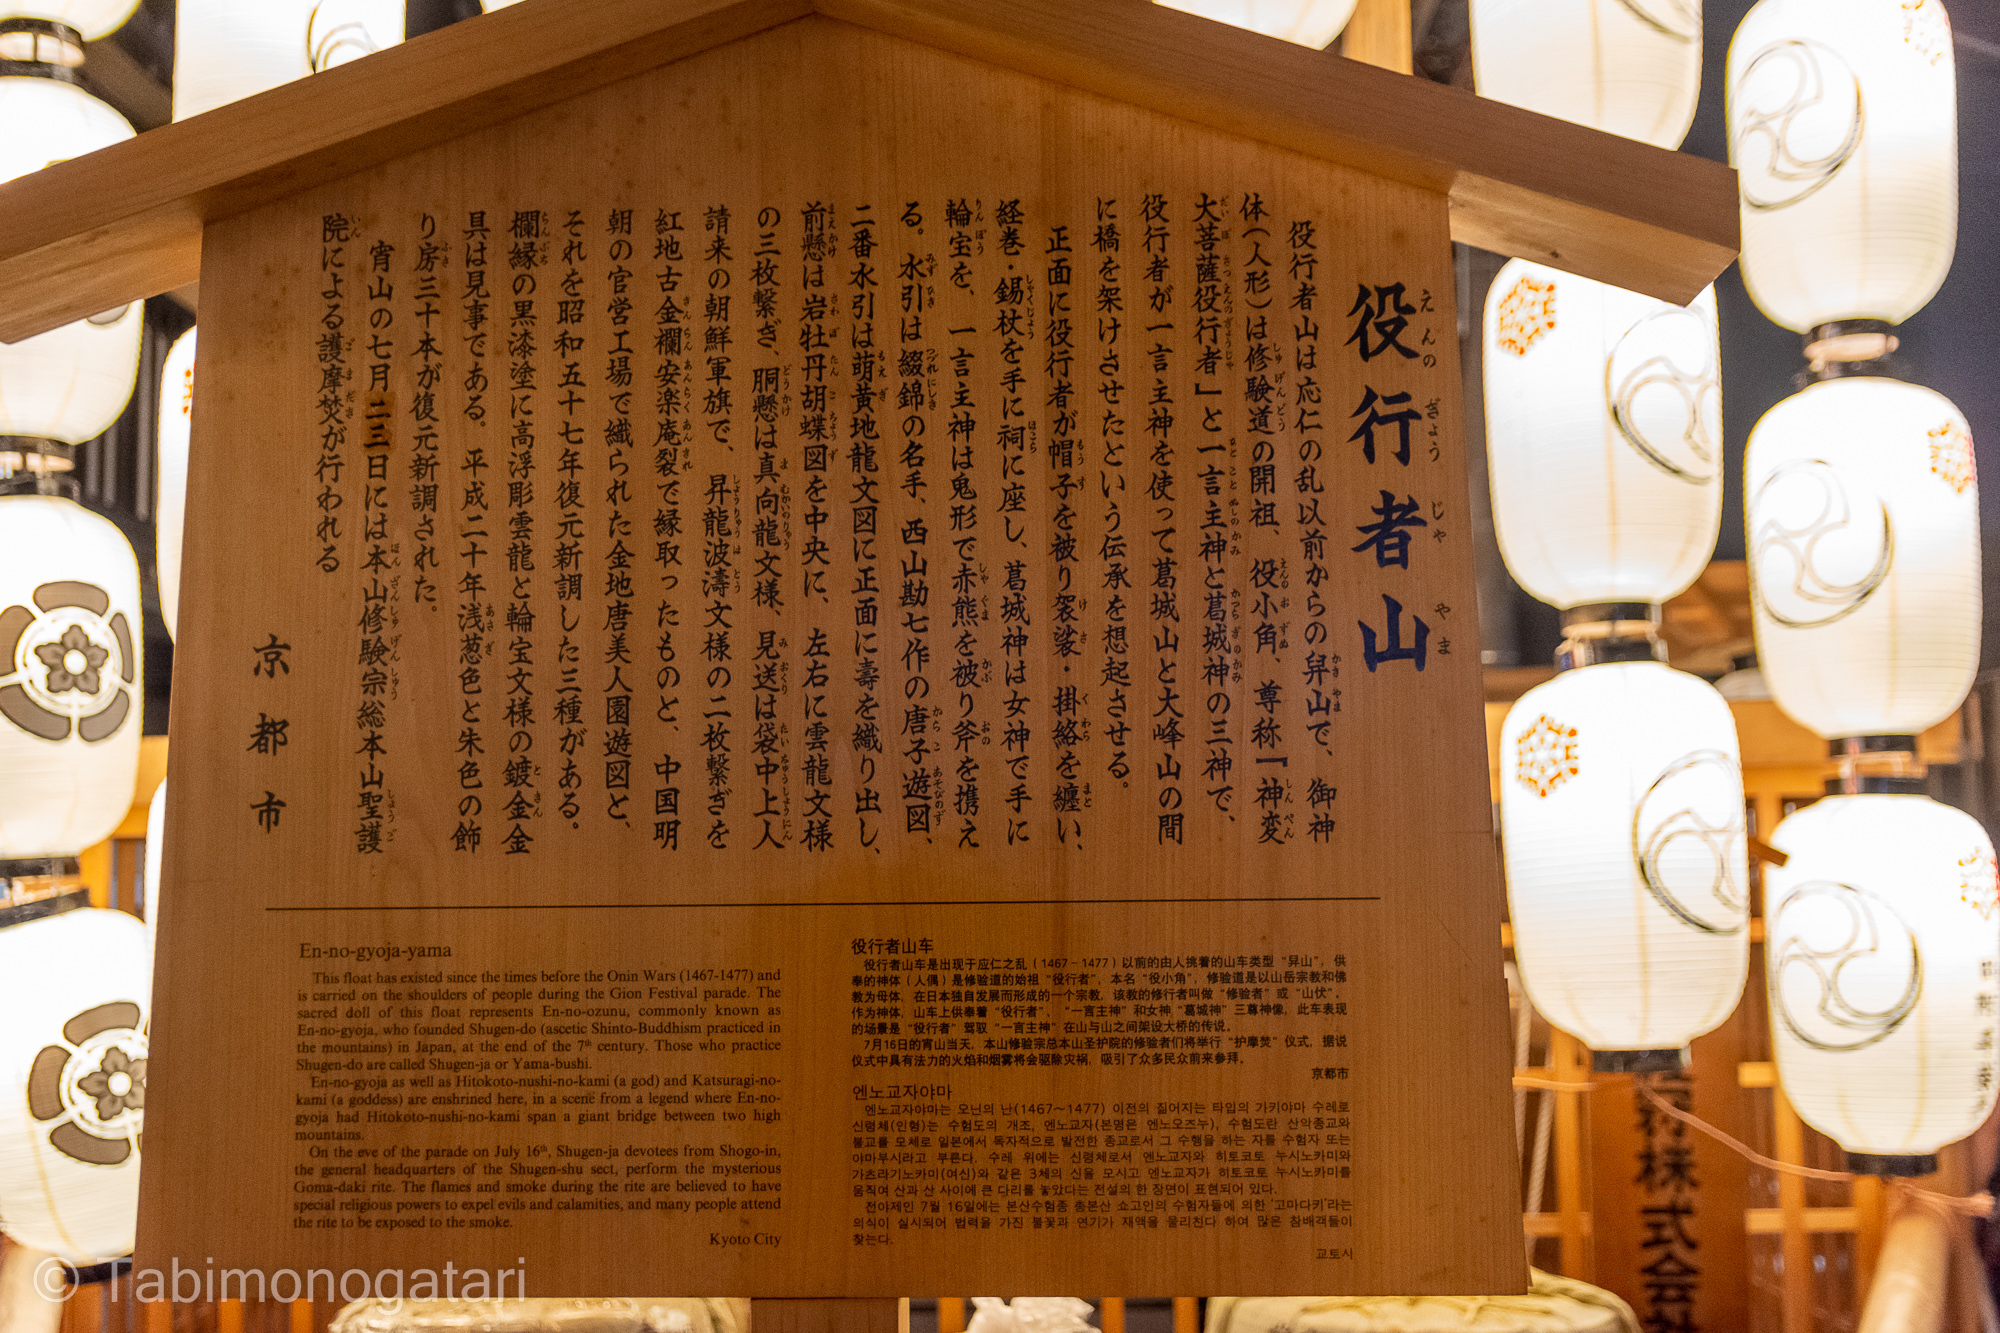 役行者山
役行者山は応仁の乱以前からの舁山で、御神
体(人形)は修験道の開祖、役小角、尊称「神変
大菩薩役行者」と一言主神と葛城神の三神で、
役行者が一言主神を使って葛城山と大峰山の間
に橋を架けさせたという伝承を想起させる。
正面に役行者が帽子を被り袈裟・掛絡を纏い、
経巻・錫杖を手に祠に座し、葛城神は女神で手に
輪宝を、一言主神は鬼形で赤熊を被り斧を携え
る。水引は綴錦の名手、西山勘七作の唐子遊図、
二番水引は萌黄地龍文図に正面に壽を織り出し、
前懸は岩牡丹胡蝶図を中央に、左右に雲龍文様
の三枚繋ぎ、胴懸は真向龍文様、見送は袋中上人
請来の朝鮮軍旗で、昇龍波濤文様の二枚繋ぎを
紅地古金襴安楽庵裂で縁取ったものと、中国明
朝の官営工場で織られた金地唐美人園遊図と、
それを昭和五十七年復元新調した三種がある。
欄縁の黒漆塗に高浮彫雲龍と輪宝文様の鍍金金
具は見事である。平成二十年浅葱色と朱色の飾
り房三十本が復元新調された。
宵山の七月二三日には本山修験宗総本山聖護
院による護摩焚が行われる
京都市
En-no-gyoja-yama
This float has existed since the times before the Onin Wars (1467-1477) and
is carried on the shoulders of people during the Gion Festival parade. The
sacred doll of this float represents En-no-ozunu, commonly known as
En-no-gyoja, who founded Shugen-do (ascetic Shinto-Buddhism practiced in
the mountains) in Japan, at the end of the 7th century. Those who practice
Shugen-do are called Shugen-ja or Yama-bushi.
En-no-gyoja as well as Hitokoto-nushi-no-kami (a god) and Katsuragi-no-
kami (a goddess) are enshrined here, in a scene from a legend where En-no-
gyoja had Hitokoto-nushi-no-kami span a giant bridge between two high
mountains.
On the eve of the parade on July 16th, Shugen-ja devotees from Shogo-in,
the general headquarters of the Shugen-shu sect, perform the mysterious
Goma-daki rite. The flames and smoke during the rite are believed to have
special religious powers to expel evils and calamities, and many people attend
the rite to be exposed to the smoke.
Kyoto City
役行者山车
役行者山车是出现于应仁之乱(1467-1477)以前的由人挑着的山车类型“舁山”,供
奉的神体(人偶)是修验道的始祖“役行者”,本名“役小角”,修验道是以山岳宗教和佛
教为母体,在日本独自发展而形成的一个宗教,该教的修行者叫做“修验者”或“山伏”。
作为神体,山车上供奉着“役行者”、“一言主神”和女神“葛城神”三尊神像,此车表现
的场景是“役行者”驾驭“一言主神”在山与山之间架设大桥的传说。
7月16日的宵山当天,本山修验宗总本山圣护院的修验者们将举行“护摩焚”仪式,据说
仪式中具有法力的火焰和烟雾将会驱除灾祸,吸引了众多民众前来参拜。
京都市
엔노교자야마
엔노교자야마는 오닌의 난(1467~1477) 이전의 짊어지는 타입의 가키야마 수레로
신령체(인형)는 수험도의 개조, 엔노교자(본명은 엔노오즈누), 수험도란 산악종교와
불교를 모체로 일본에서 독자적으로 발전한 종교로서 그 수행을 하는 자를 수험자 또는
야마부시라고 부른다. 수레 위에는 신령체로서 엔노교자와 히토코토 누시노카미와
가츠라기노카미(여신)와 같은 3체의 신을 모시고 엔노교자가 히토코토 누시노카미를
움직여 산과 산 사이에 큰 다리를 놓았다는 전설의 한 장면이 표현되어 있다.
전야제인 7월 16일에는 본산수험종 총본산 쇼고인의 수험자들에 의한 '고마다키'라는
의식이 실시되어 법력을 가진 불꽃과 연기가 재액을 물리친다 하여 많은 참배객들이
찾는다.
교토시
株式会社
© Tabimonogatari